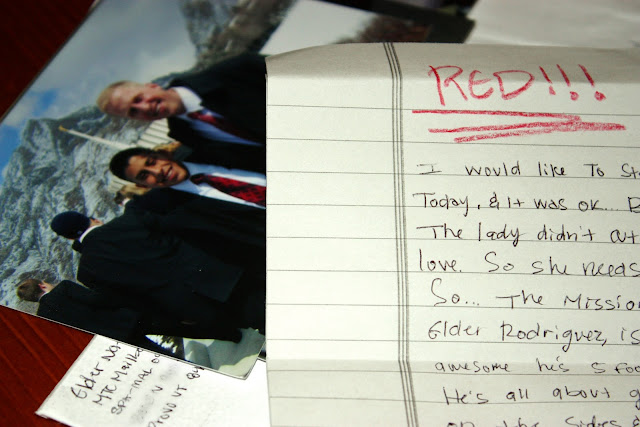 RED!!!
I would like To
Today, & It was ok...
The lady didn't
love. So she needs
So... The Mission
Elder Rodriguez, is
awesome he's 5 foo
He's all about g
on the sides
Elder
MTC Mail
Provo UT